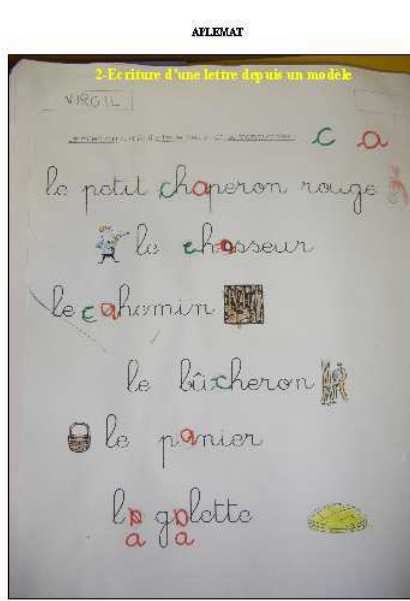 APLEMAT
2-Ecriture d'une lettre depuis un modèle
VIRGIL
c a
le petit chaperon rouge
le chasseur
le cahemin
le bûcheron
le panier
la galette
a a